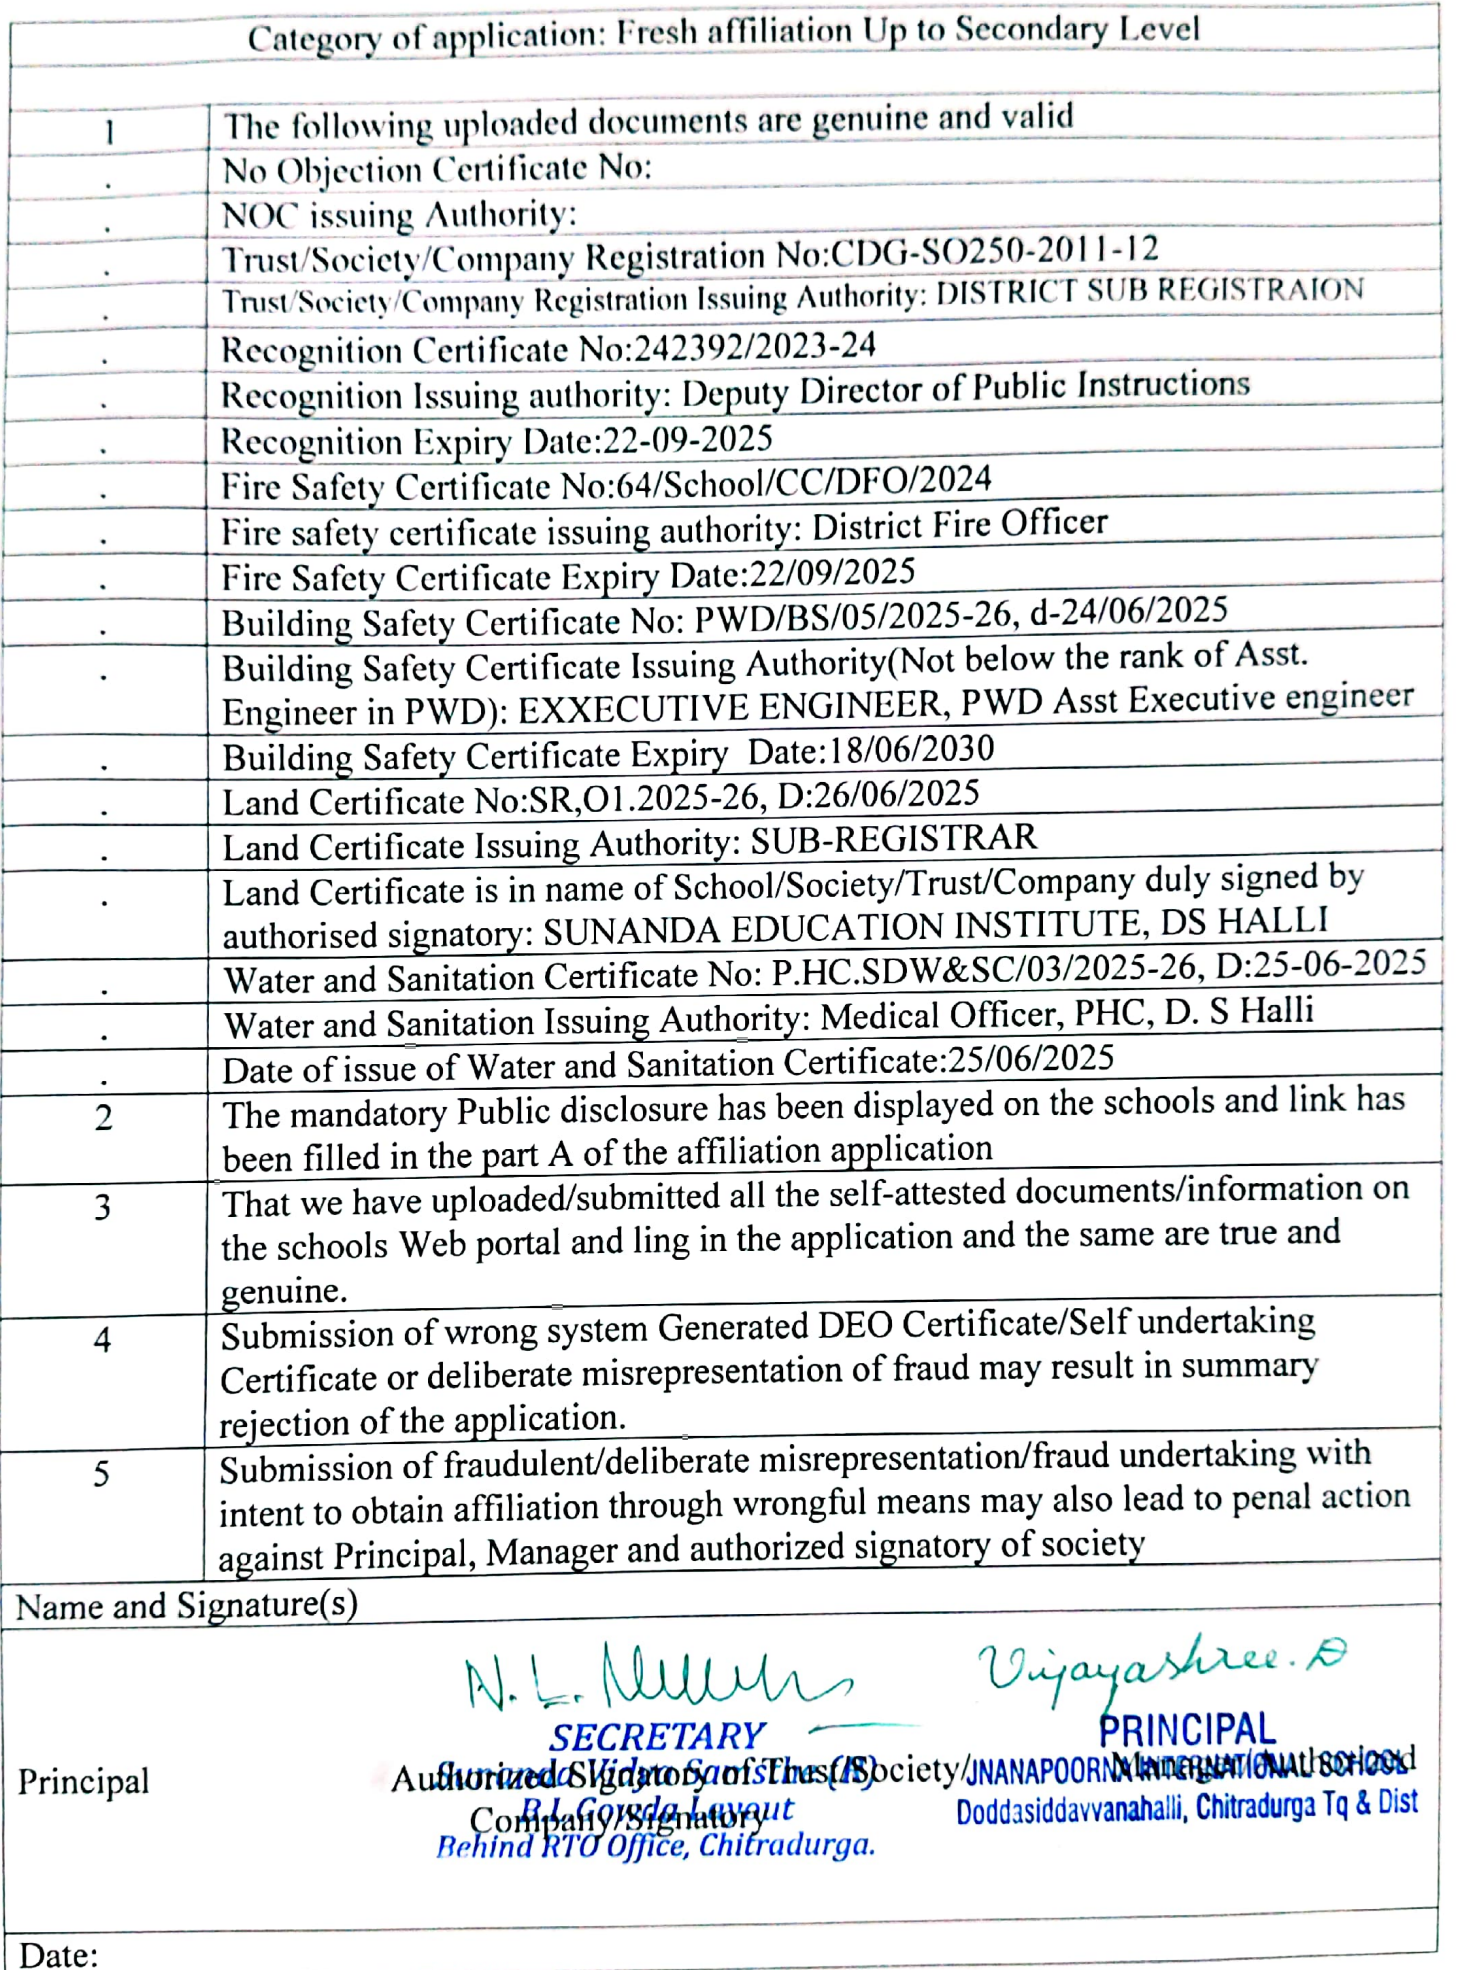 Category of application: Fresh affiliation Up to Secondary Level
1 The following uploaded documents are genuine and valid
. No Objection Certificate No:
. NOC issuing Authority:
. Trust/Society/Company Registration No:CDG-SO250-2011-12
. Trust/Society/Company Registration Issuing Authority: DISTRICT SUB REGISTRAION
. Recognition Certificate No:242392/2023-24
. Recognition Issuing authority: Deputy Director of Public Instructions
. Recognition Expiry Date:22-09-2025
. Fire Safety Certificate No:64/School/CC/DFO/2024
. Fire safety certificate issuing authority: District Fire Officer
. Fire Safety Certificate Expiry Date:22/09/2025
. Building Safety Certificate No: PWD/BS/05/2025-26, d-24/06/2025
. Building Safety Certificate Issuing Authority(Not below the rank of Asst.
Engineer in PWD): EXXECUTIVE ENGINEER, PWD Asst Executive engineer
. Building Safety Certificate Expiry Date:18/06/2030
. Land Certificate No:SR,O1.2025-26, D:26/06/2025
. Land Certificate Issuing Authority: SUB-REGISTRAR
. Land Certificate is in name of School/Society/Trust/Company duly signed by
authorised signatory: SUNANDA EDUCATION INSTITUTE, DS HALLI
. Water and Sanitation Certificate No: P.HC.SDW&SC/03/2025-26, D:25-06-2025
. Water and Sanitation Issuing Authority: Medical Officer, PHC, D. S Halli
. Date of issue of Water and Sanitation Certificate:25/06/2025
2 The mandatory Public disclosure has been displayed on the schools and link has
been filled in the part A of the affiliation application
3 That we have uploaded/submitted all the self-attested documents/information on
the schools Web portal and ling in the application and the same are true and
genuine.
4 Submission of wrong system Generated DEO Certificate/Self undertaking
Certificate or deliberate misrepresentation of fraud may result in summary
rejection of the application.
5 Submission of fraudulent/deliberate misrepresentation/fraud undertaking with
intent to obtain affiliation through wrongful means may also lead to penal action
against Principal, Manager and authorized signatory of society
Name and Signature(s)
N. L. Vijayashree. D
SECRETARY PRINCIPAL
Principal Authorized Signatory of Trust/Society/ Manager/Authorized
Sunanda Vidya Samsthe (R) JNANAPOORNA INTERNATIONAL SCHOOL
Company/Signatory
B.L Gowda Layout Doddasiddavvanahalli, Chitradurga Tq & Dist
Behind RTO Office, Chitradurga.
Date: